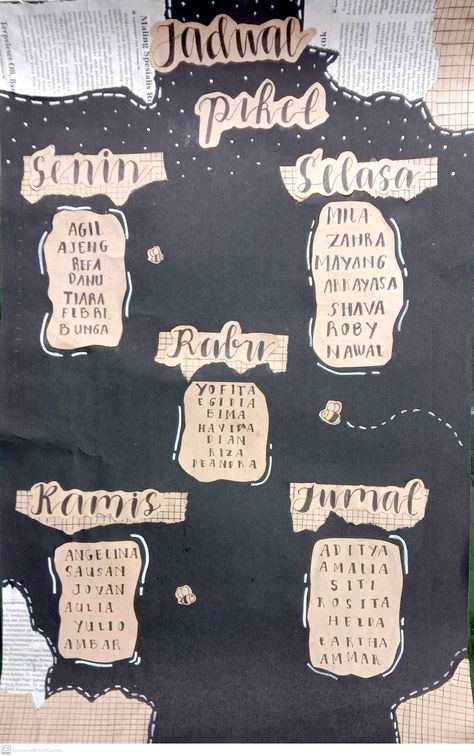 Jadwal
piket
Senin
AGIL
AJENG
REFA
DANU
TIARA
FEBRI
BUNGA
Selasa
MILA
ZAHRA
MAYANG
ARKAYASA
SHAVA
ROBY
NAWAL
Rabu
YOFITA
EGIDIA
BIMA
HAVIDA
DIAN
RIZA
DEANDRA
Kamis
ANGELINA
SAUSAN
JOVAN
AULIA
YULIO
AMBAR
Jumat
ADITYA
AMALIA
SITI
ROSITA
HELDA
EARTHA
AMMAR
CS Scanned with CamScanner